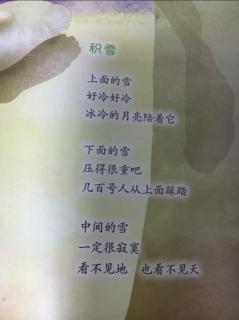 积雪
上面的雪
好冷好冷
冰冷的月亮陪着它
下面的雪
压得很重吧
几百号人从上面踩踏
中间的雪
一定很寂寞
看不见地 也看不见天